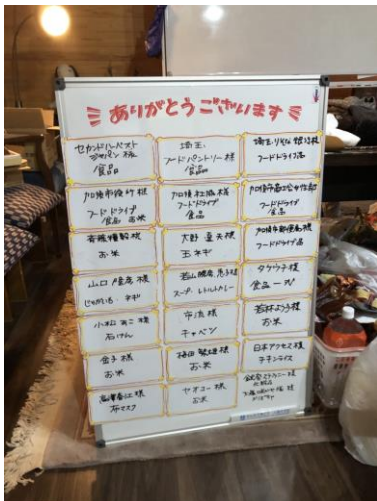 ありがとうございます
セカンドハーベスト
ジャパン様
食品
埼玉
フードパントリー様
食品
埼玉りそな銀行様
フードドライブ品
加須市役所様
フードドライブ
食品 お米
加須社協様
フードドライブ
食品
フードドライブ
食品
お米
大野 様
玉ネギ
加須郵便局様
フードドライブ品
山口 様
じゃがいも ネギ
若山 様
スープ レトルトカレー
タケウチ様
食品一式
小松 様
石けん
市流様
キャベツ
若林 様
お米
金子様
お米
梅田 様
お米
日本アクセス様
チキンライス
様
布マスク
ヤオコー様
お米
様